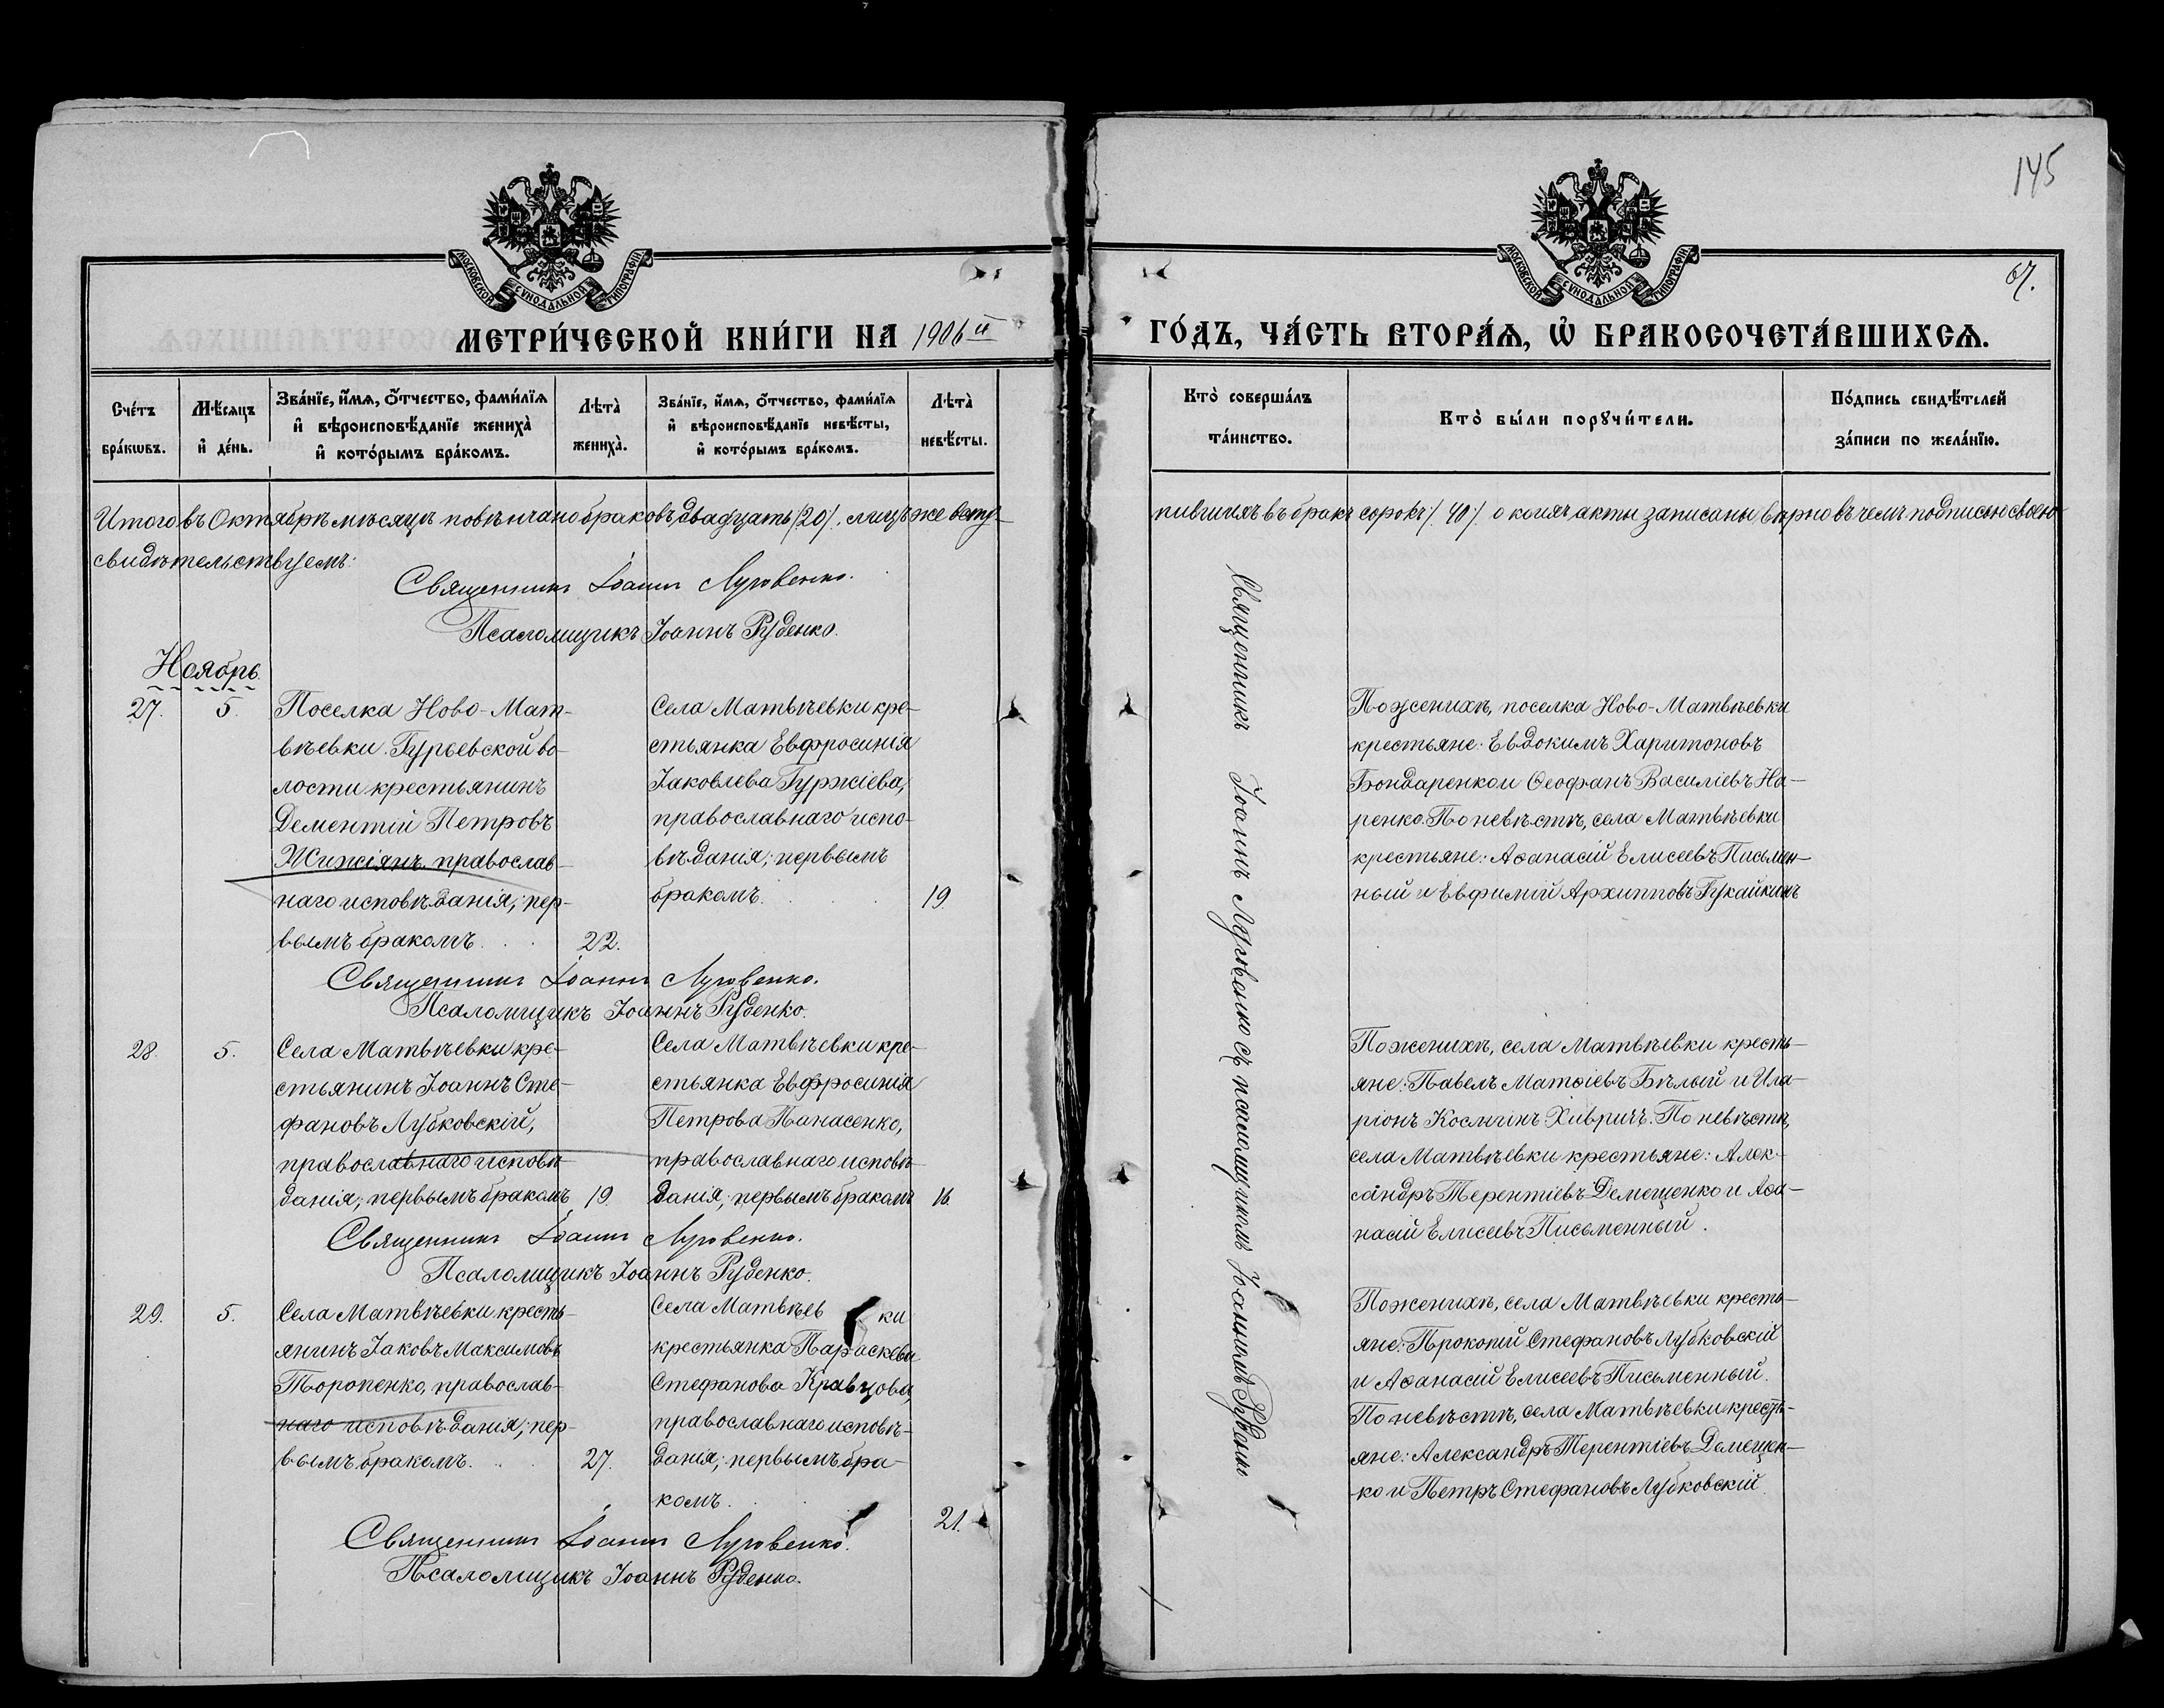 145
67.
МОСКОВСКОЙ СѴНОДАЛЬНОЙ ТИПОГРАФІИ
МОСКОВСКОЙ СѴНОДАЛЬНОЙ ТИПОГРАФІИ
МЕТРИ́ЧЕСКОЙ КНИ́ГИ НА 1906 й ГО́ДЪ, ЧА́СТЬ ВТОРА́Ѧ, Ѡ҆ БРАКОСОЧЕТА́ВШИХСѦ.
Сче́тъ бра́кѡвъ.
Мѣ́сяцъ и҆ де́нь.
Зва́нїе, и҆́мѧ, ѻ҆́тчество, фами́лїѧ и҆ вѣроисповѣ́данїе жениха̀ и҆ кото́рымъ бра́комъ.
Лѣта̀ жениха̀.
Зва́нїе, и҆́мѧ, ѻ҆́тчество, фами́лїѧ и҆ вѣроисповѣ́данїе невѣ́сты, и҆ кото́рымъ бра́комъ.
Лѣта̀ невѣ́сты.
Кто̀ соверша́лъ та́инство.
Кто̀ бы́ли порꙋчи́тели.
По́дпись свидѣ́телей за́писи по жела́нїю.
Итого въ Октябрѣ мѣсяцѣ повѣнчано браковъ двадцать /20/, лицъ же всту-
пившихъ въ бракъ сорокъ /40/ о коихъ акты записаны вѣрно въ чемъ подписью своею
свидѣтельствуемъ:
Священникъ Іоаннъ Луговенко.
Псаломщикъ Іоаннъ Руденко.
Ноябрь.
27.
5.
Поселка Ново-Мат-
вѣевки Гурьевской во-
лости крестьянинъ
Дементій Петровъ
Жижіянъ, православ-
наго исповѣданія, пер-
вымъ бракомъ.
22.
Села Матвѣевки кре-
стьянка Евфросинія
Іаковлева Гуржіева,
православнаго испо-
вѣданія, первымъ
бракомъ.
19.
По женихѣ, поселка Ново-Матвѣевки
крестьяне: Евдокимъ Харитоновъ
Бондаренко и Ѳеофанъ Василіевъ На-
ренко. По невѣстѣ, села Матвѣевки
крестьяне: Аѳанасій Елисеевъ Письмен-
ный и Евфимій Архипповъ Гукайкинъ
Священникъ Іоаннъ Луговенко.
Псаломщикъ Іоаннъ Руденко.
28.
5.
Села Матвѣевки кре-
стьянинъ Іоаннъ Сте-
фановъ Лубковскій,
православнаго исповѣ-
данія, первымъ бракомъ
19.
Села Матвѣевки кре-
стьянка Евфросинія
Петрова Панасенко,
православнаго исповѣ-
данія, первымъ бракомъ
16.
По женихѣ, села Матвѣевки кресть-
яне: Павелъ Матѳіевъ Бѣлый и Ила-
ріонъ Космичъ Хивричъ. По невѣстѣ,
села Матвѣевки крестьяне: Алек-
сандръ Терентіевъ Демещенко и Аѳа-
насій Елисеевъ Письменный.
Священникъ Іоаннъ Луговенко.
Псаломщикъ Іоаннъ Руденко.
29.
5.
Села Матвѣевки кресть-
янинъ Іаковъ Максимовъ
Торопенко, православ-
наго исповѣданія, пер-
вымъ бракомъ.
27.
Села Матвѣев ки
крестьянка Параскева
Стефанова Кравцова,
православнаго исповѣ-
данія, первымъ бра-
комъ.
21.
По женихѣ, села Матвѣевки кресть-
яне: Прокопій Стефановъ Лубковскій
и Аѳанасій Елисеевъ Письменный.
По невѣстѣ, села Матвѣевки кресть-
яне: Александръ Терентіевъ Демещен-
ко и Петръ Стефановъ Лубковскій.
Священникъ Іоаннъ Луговенко.
Псаломщикъ Іоаннъ Руденко.
Священникъ Іоаннъ Луговенко съ псаломщикомъ Іоанномъ Руденко